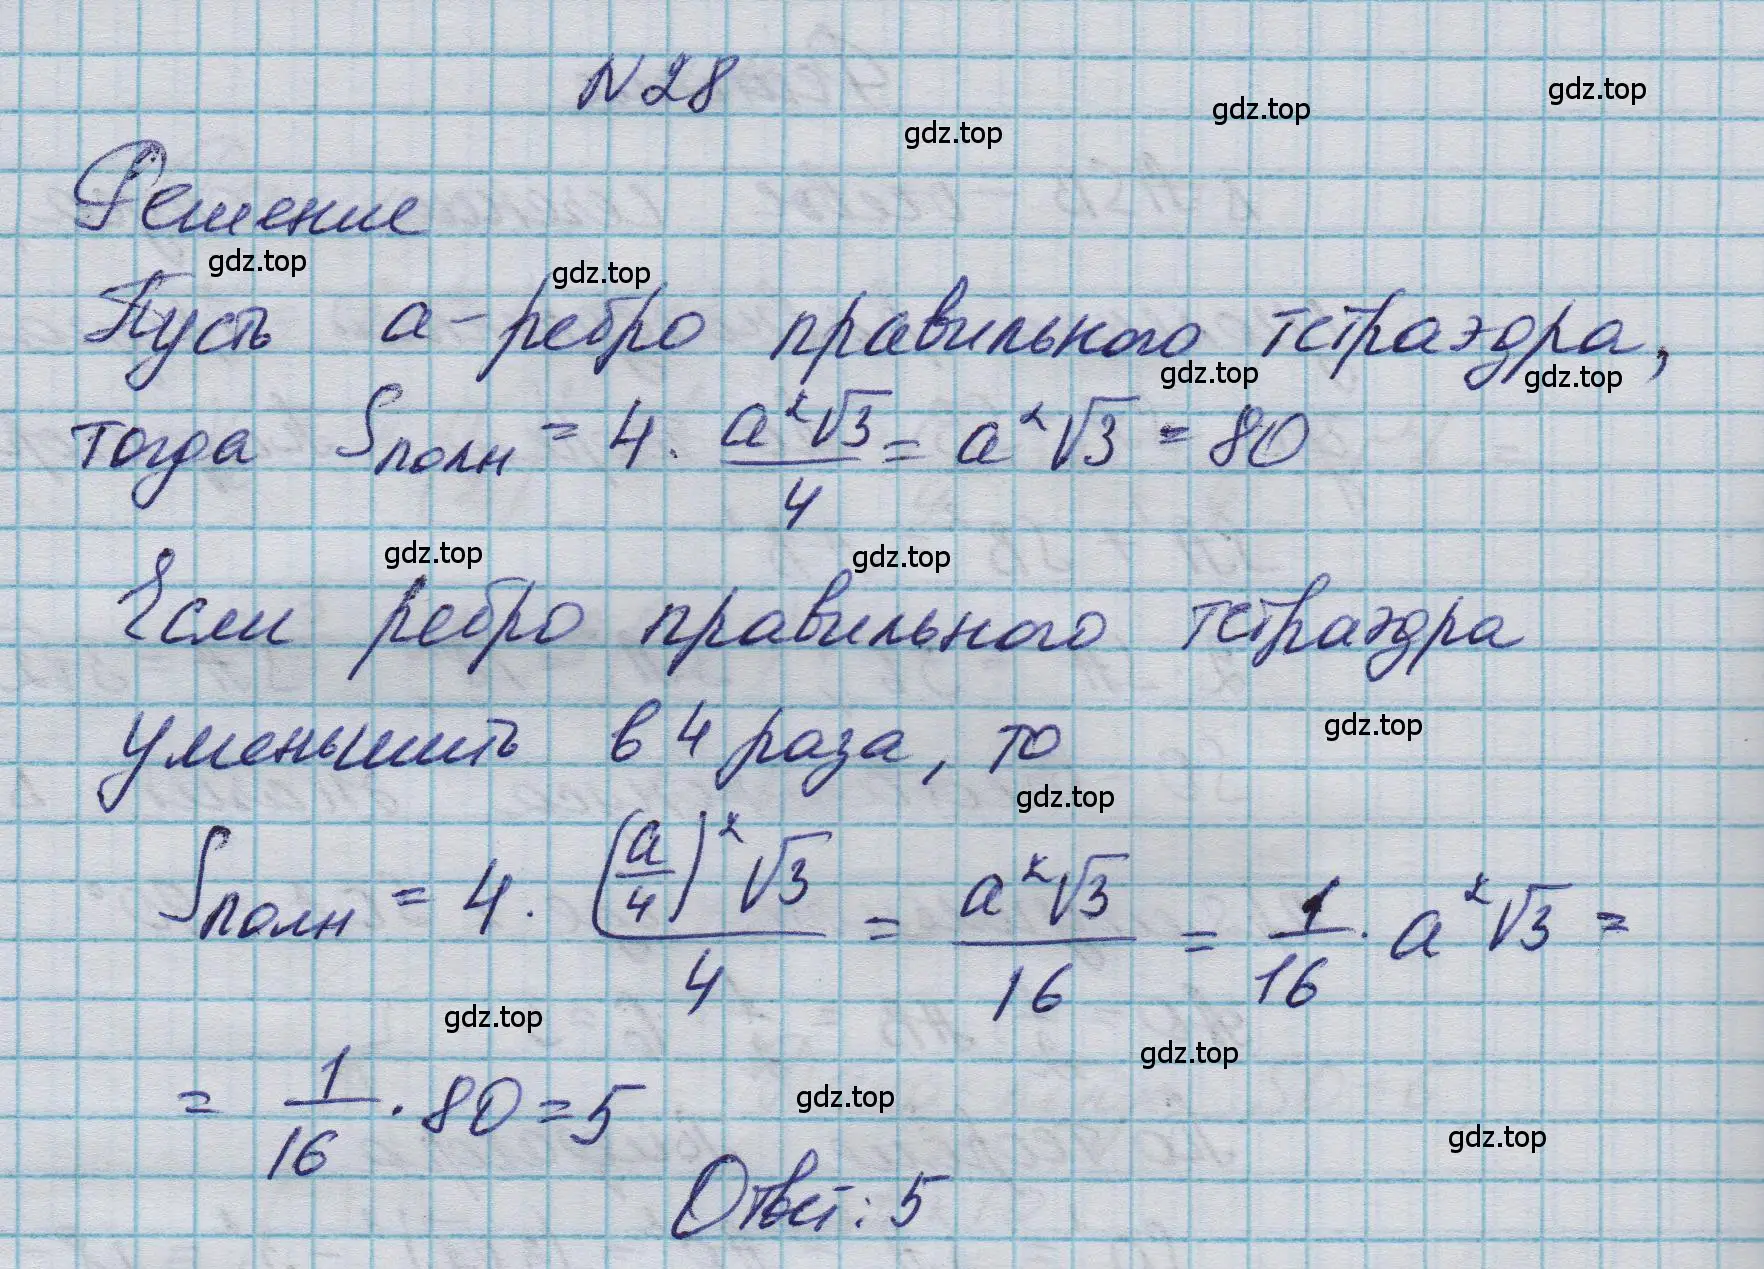 N 28
gdz.top gdz.top gdz.top
Решение
gdz.top gdz.top
Пусть a - ребро правильного тетраэдра,
gdz.top gdz.top
тогда Sполн = 4 · a²√3/4 = a²√3 = 80
gdz.top gdz.top
Если ребро правильного тетраэдра
уменьшить в 4 раза, то
gdz.top
gdz.top
Sполн = 4 · (a/4)²√3/4 = a²√3/16 = 1/16 · a²√3 =
gdz.top
gdz.top
= 1/16 · 80 = 5
gdz.top
gdz.top
Ответ: 5